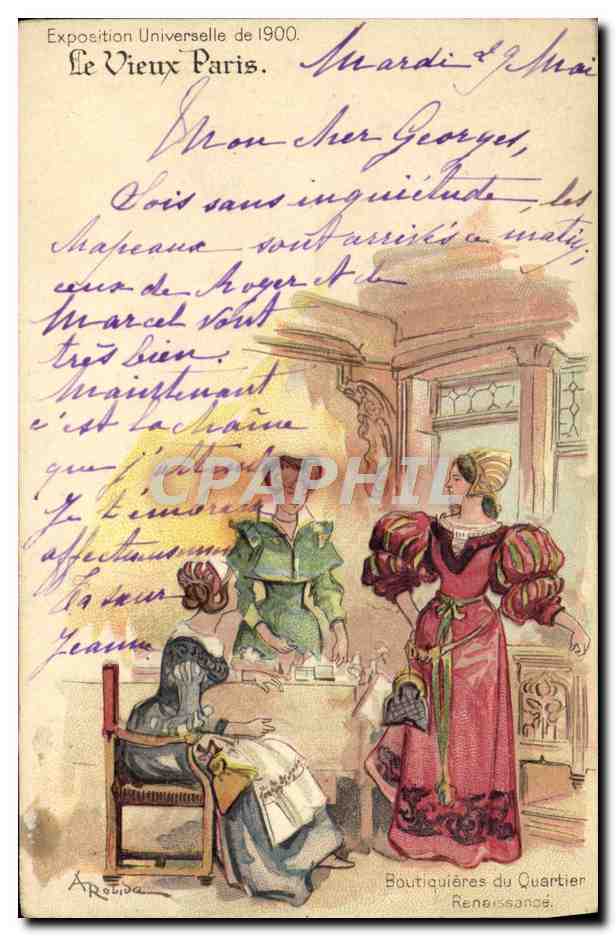 Exposition Universelle de 1900.
Le Vieux Paris.
Mardi 9 Mai
Mon cher Georges,
Sois sans inquiétude, les
chapeaux sont arrivés ce matin,
ceux de Roger et de
Marcel vont
très bien.
Maintenant
c'est la
que j'attends
Je t'embrasse
affectueusement
Ta sœur
Jeanne
CPAPHIL
A Robida
Boutiquières du Quartier
Renaissance.